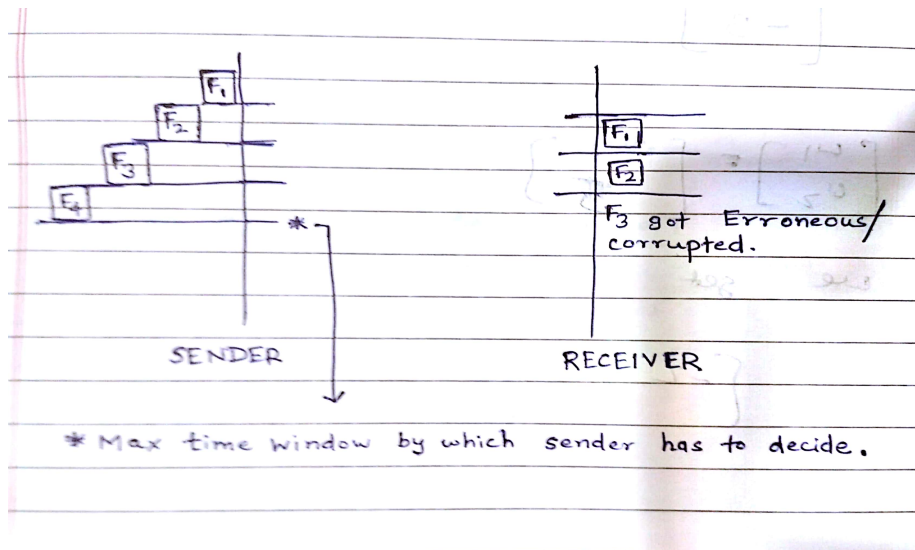 F1
F2
F3
F4
*
SENDER
F1
F2
F3 got Erroneous/
corrupted.
RECEIVER
* Max time window by which sender has to decide.